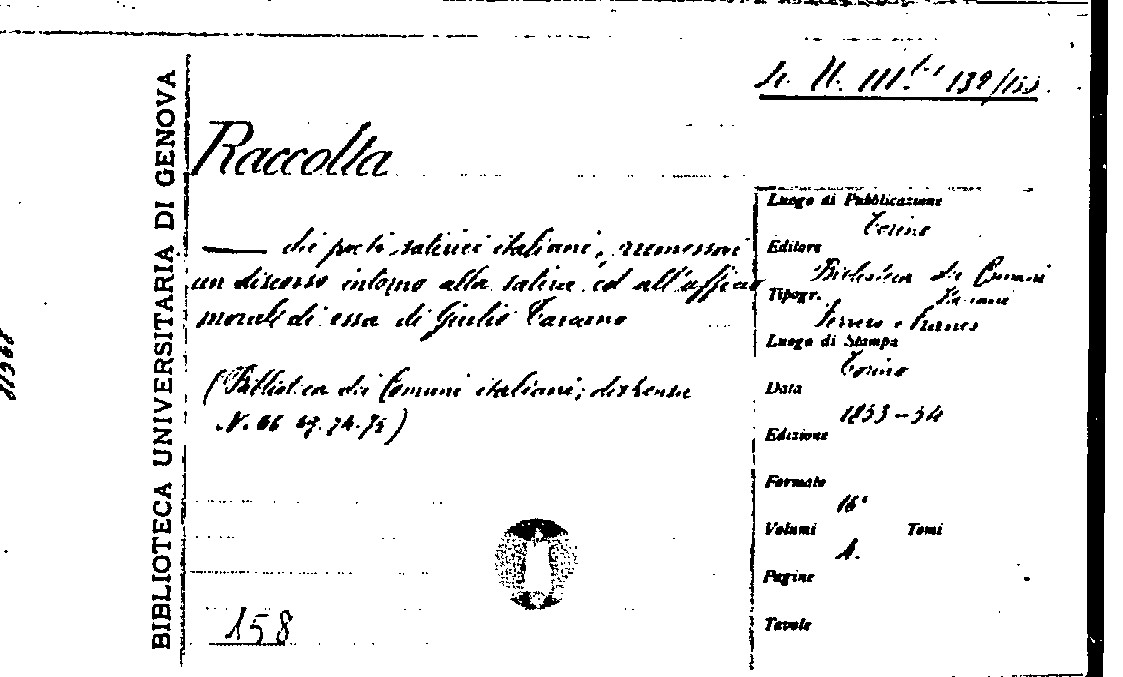 BIBLIOTECA UNIVERSITARIA DI GENOVA
Raccolta
dei poeti satirici italiani, premessovi
un discorso intorno alla satira ed all'ufficio
morale di essa di Giulio Carcano
(Biblioteca dei Comuni italiani; dispensa
N. 66 67. 74. 75)
158
Luogo di Pubblicazione
Torino
Editore
Biblioteca dei Comuni
italiani
Tipogr.
Ferrero e Franco
Luogo di Stampa
Torino
Data
1853-54
Edizione
Formato
16°
Volumi Tomi
Pagine
Tavole